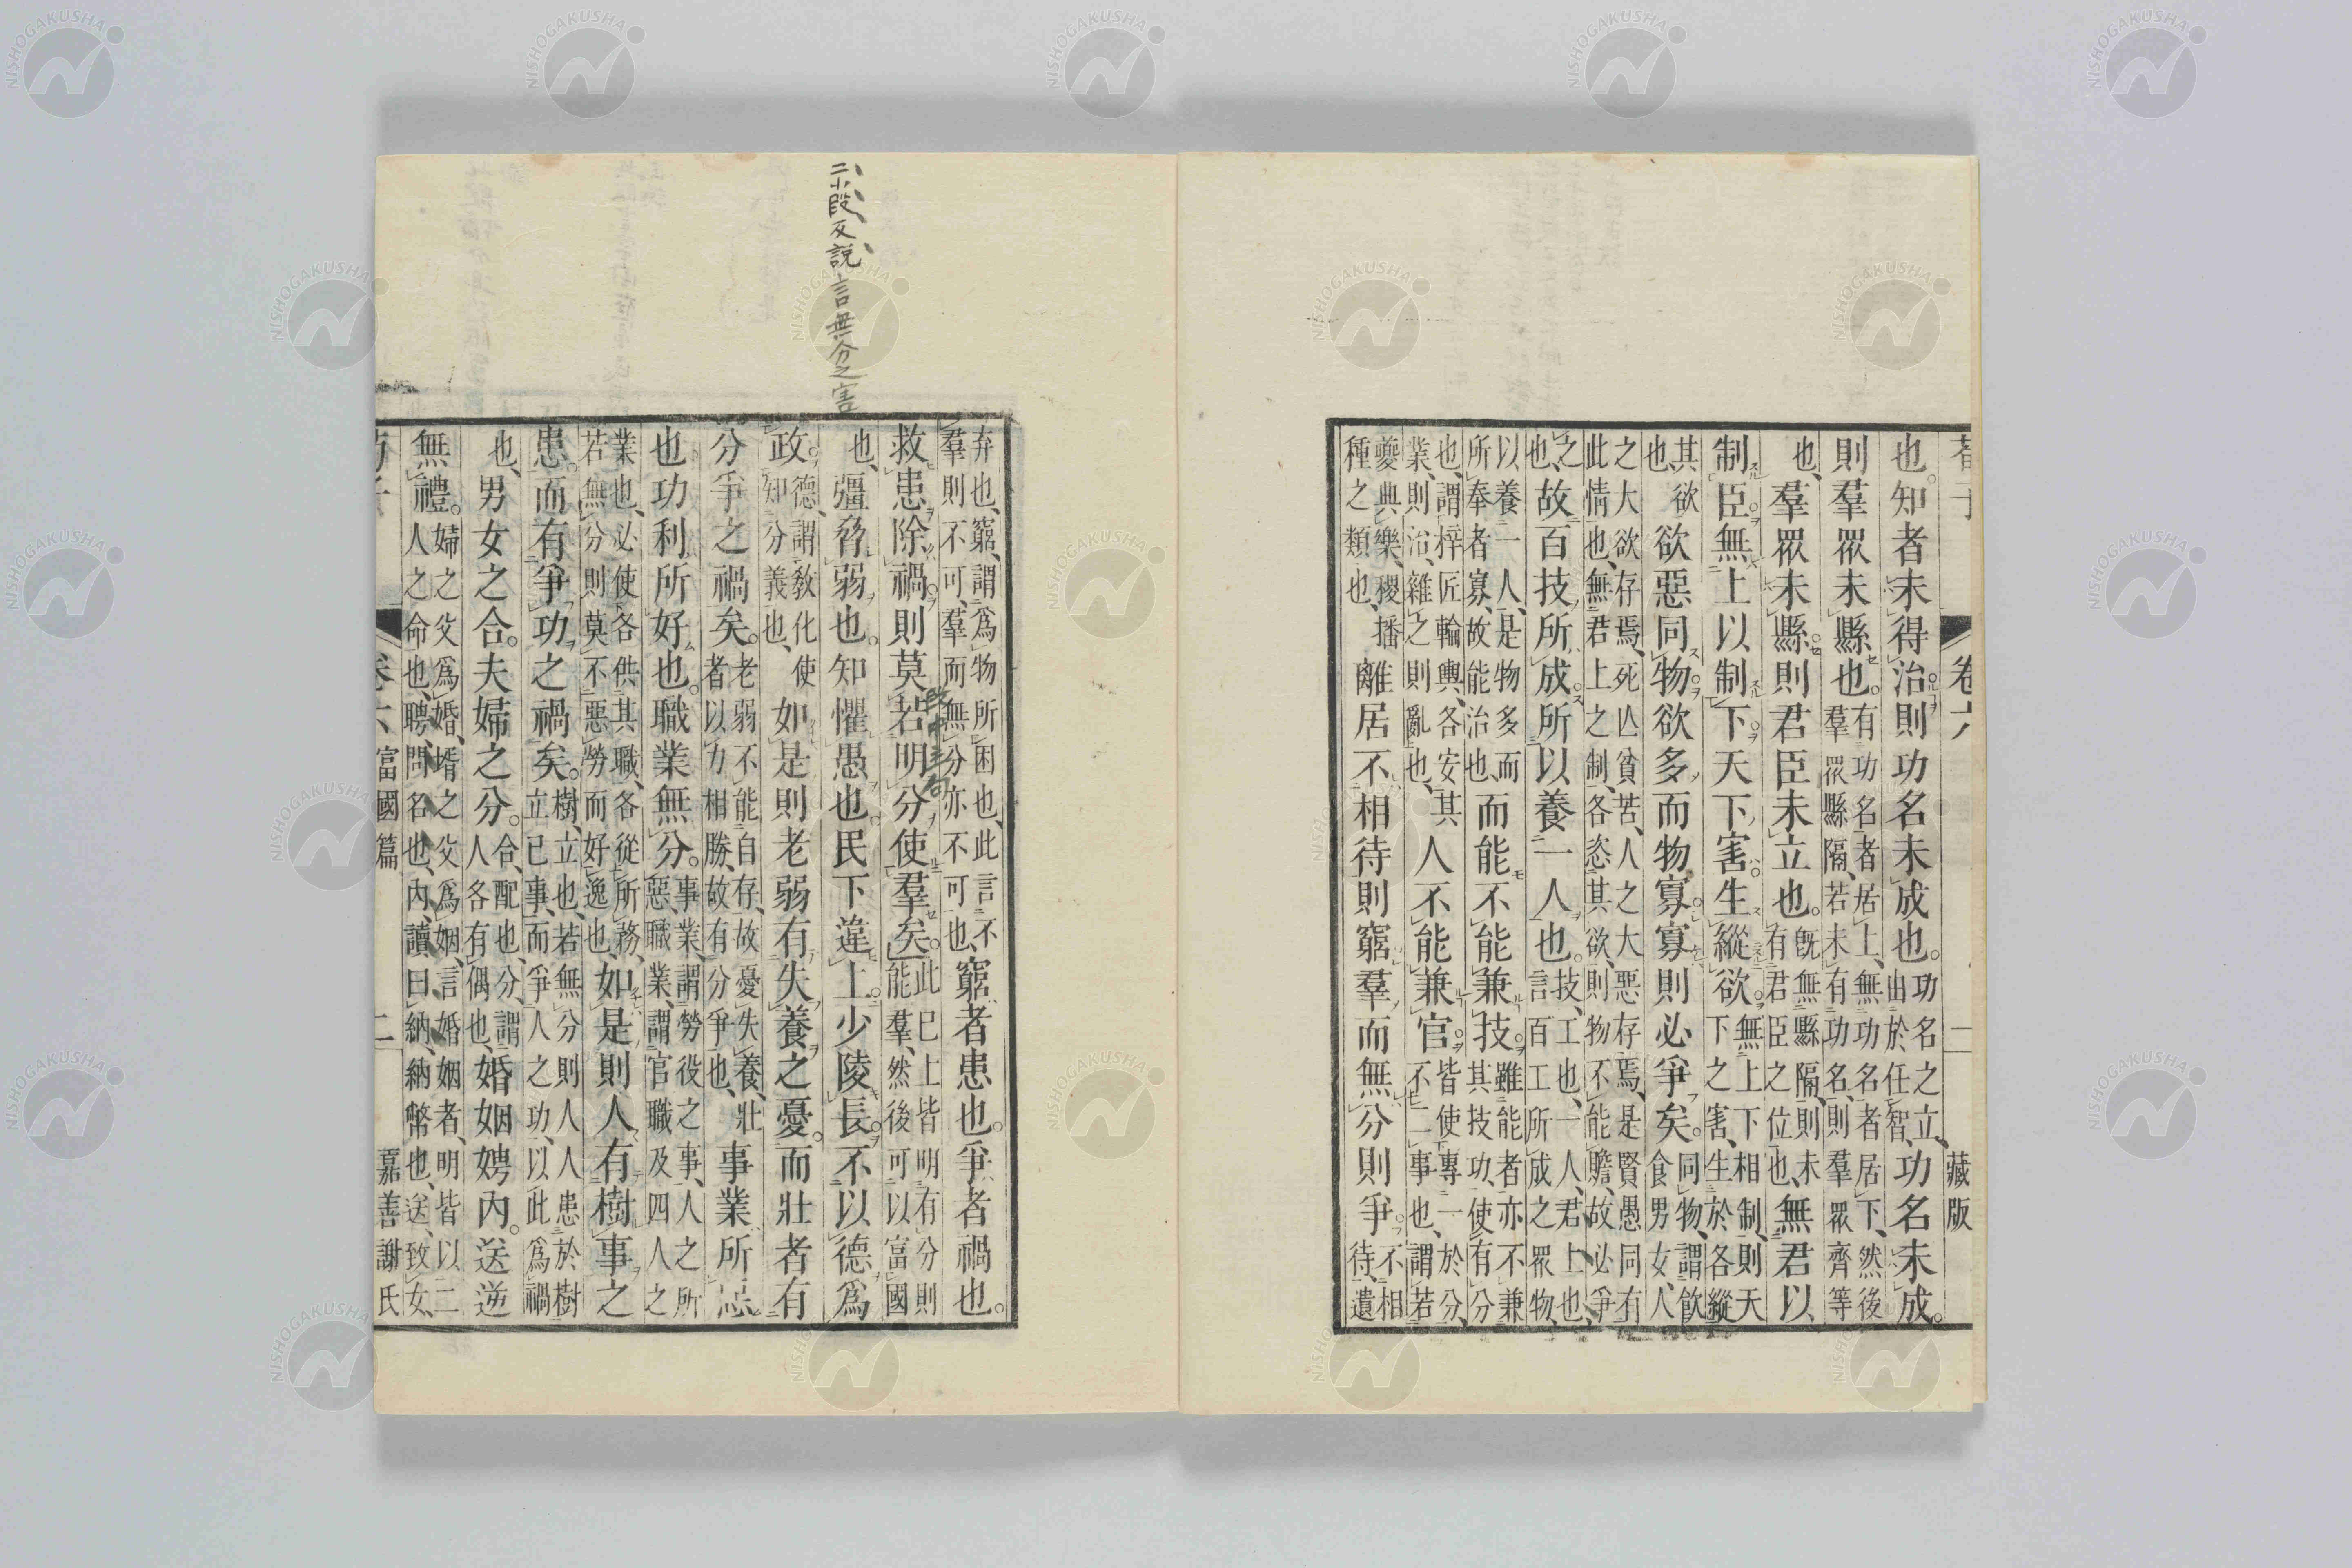 荀子 卷六 一 藏版
也。知者未得治則功名未成也。功名之立、由於任智、功名未成。
則羣眾未縣也。有功名者居上、無功名者居下、然後羣眾縣隔、若未有功名、則羣眾齊等
也、羣眾未縣則君臣未立也。既無縣隔、則未有君臣之位也、無君以
制臣無上以制下天下害生縱欲。無上下相制、則天下之害、生於各縱
其欲也、欲惡同物欲多而物寡寡則必爭矣。同物、謂飲食男女、人
之大欲存焉、死亾貧苦、人之大惡存焉、是賢愚同有此情也、無君上之制、各恣其欲、則物不能贍、故必爭
之也、故百技所成所以養一人也。技、工也、一人、君上也、言百工所成之眾物、
以養一人、是物多而所奉者寡、故能治也、而能不能兼技。雖能者亦不兼其技功、使有分
也、謂梓匠輪輿、各安其業、則治、雜之則亂也、人不能兼官。皆使專一於分、不二事也、謂若
夔典樂、稷播種之類也、離居不相待則窮羣而無分則爭。不相待、遺
二小段反説言無分之害
弃也、窮、謂爲物所困也、此言不羣則不可、羣而無分亦不可也、窮者患也。爭者禍也。
救患除禍則莫若明分使羣矣。此已上皆明有分則能羣、然後可以富國
也、彊脅弱也。知懼愚也。民下違上。少陵長。不以德爲
政。德、謂教化使知分義也、如是則老弱有失養之憂。而壯者有
分爭之禍矣。老弱不能自存、故憂失養、壯者以力相勝、故有分爭也、事業所惡
也功利所好也。職業無分。事業、謂勞役之事、人之所惡、職業、謂官職及四人之
業也、必使各供其職、各從所務、若無分則莫不惡勞而好逸也、如是則人有樹事之
患。而有爭功之禍矣。樹、立也、若無分則人人患於樹立已事、而爭人之功、以此爲禍
也、男女之合。夫婦之分。合、配也、分、謂人各有偶也、婚姻娉內。送逆
無禮。婦之父爲婚、壻之父爲姻、言婚姻者、明皆以二人之命也、聘、問名也、內、讀曰納、納幣也、送、致女、
荀子 卷六 富國篇 二 嘉善謝氏